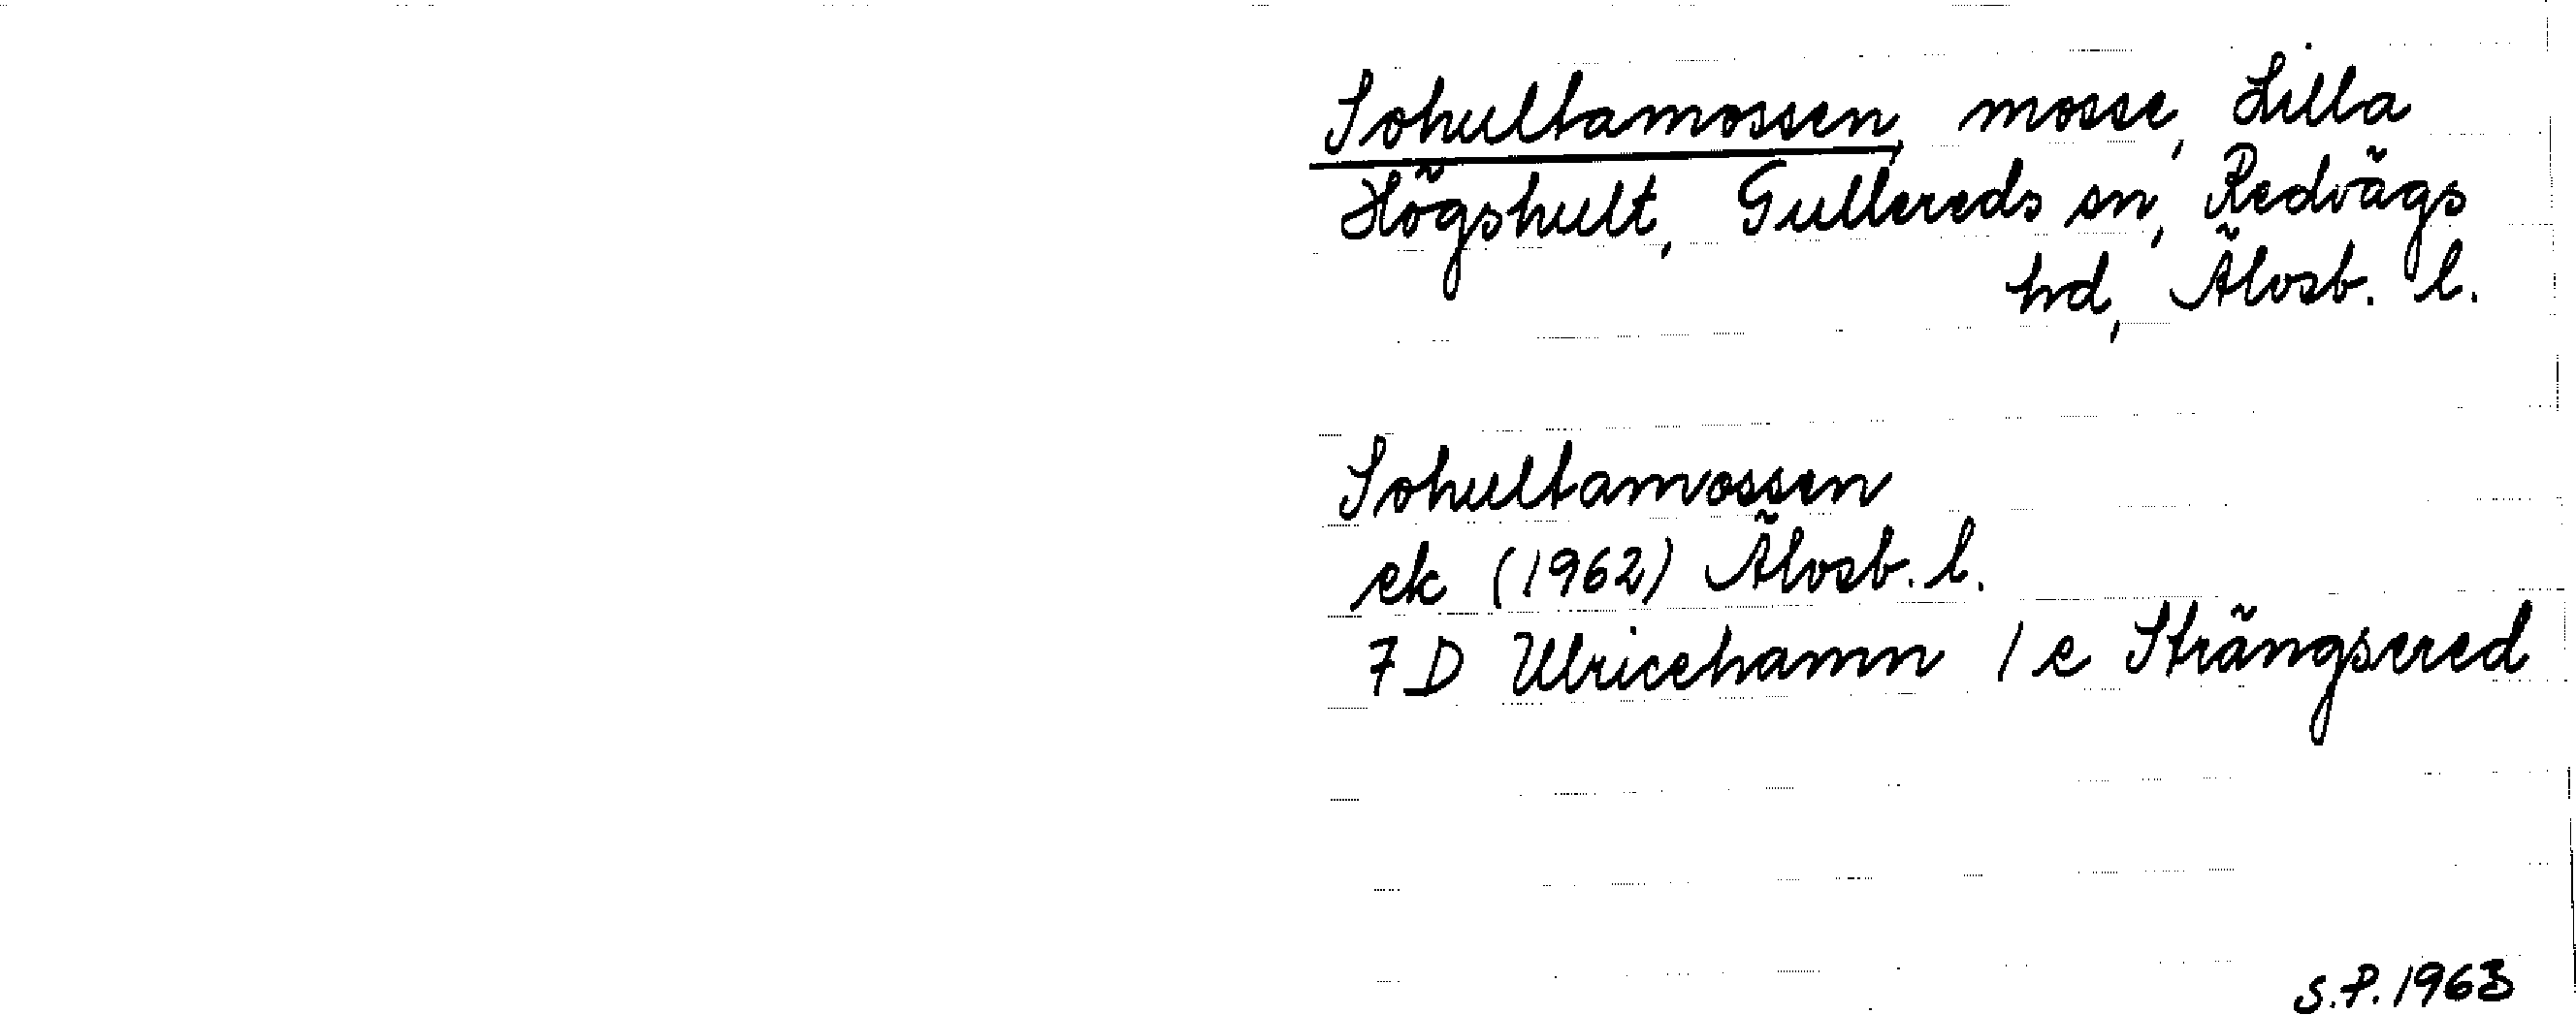 Sohultamossen, mosse, Lilla
Högshult, Gullereds sn, Redvägs
hd, Älvsb. l.
Sohultamossen
ek (1962) Älvsb. l.
7 D Ulricehamn 1 e Strängsered
S.P. 1963